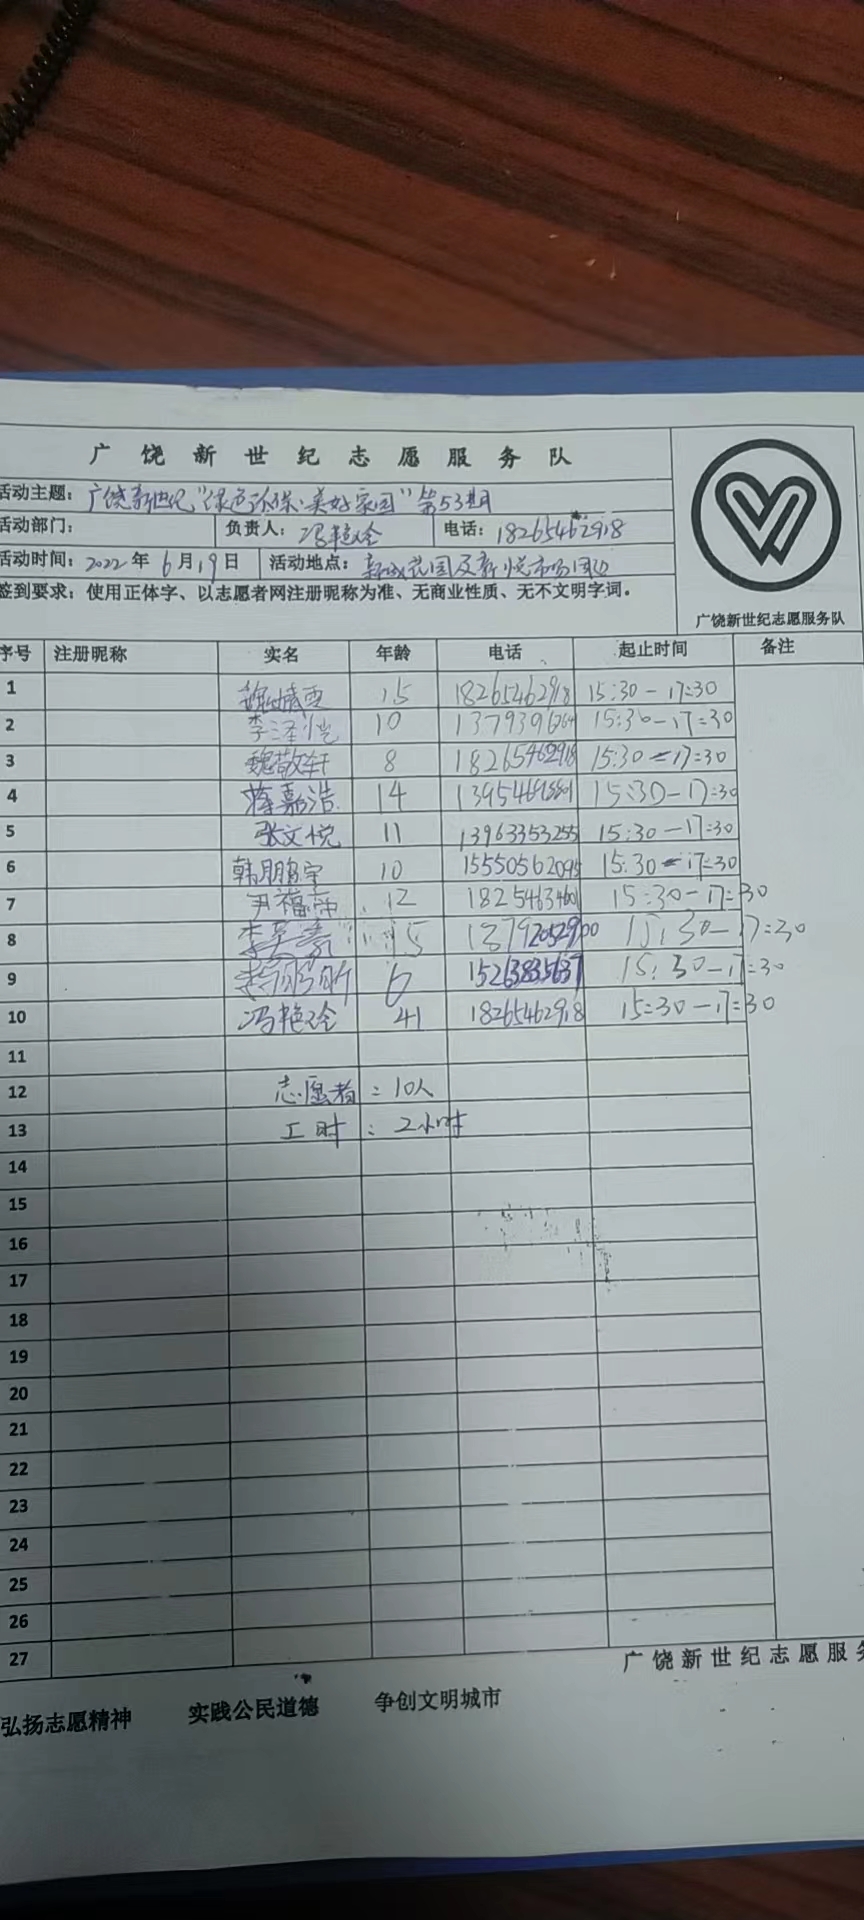 广饶新世纪志愿服务队
活动主题：广饶新世纪“绿色环保·美好家园”第53期
活动部门： 负责人：冯艳全 电话：18265462918
活动时间：2022年6月19日 活动地点：新城花园及新悦市场周边
签到要求：使用正体字、以志愿者网注册昵称为准、无商业性质、无不文明字词。
广饶新世纪志愿服务队
序号 注册昵称 实名 年龄 电话 起止时间 备注
1 魏婧雯 15 18265462918 15:30-17:30
2 李泽恺 10 15:30-17:30
3 魏敬轩 8 18265462918 15:30-17:30
4 蒋嘉浩 14 15:30-17:30
5 张文悦 11 13963353255 15:30-17:30
6 韩鹏宇 10 15550562095 15:30-17:30
7 尹福 12 18254634601 15:30-17:30
8 李 15 13792052900 15:30-17:30
9 6 15263835637 15:30-17:30
10 冯艳全 41 18265462918 15:30-17:30
11
12 志愿者：10人
13 工时：2小时
14
15
16
17
18
19
20
21
22
23
24
25
26
27
广饶新世纪志愿服务
弘扬志愿精神 实践公民道德 争创文明城市